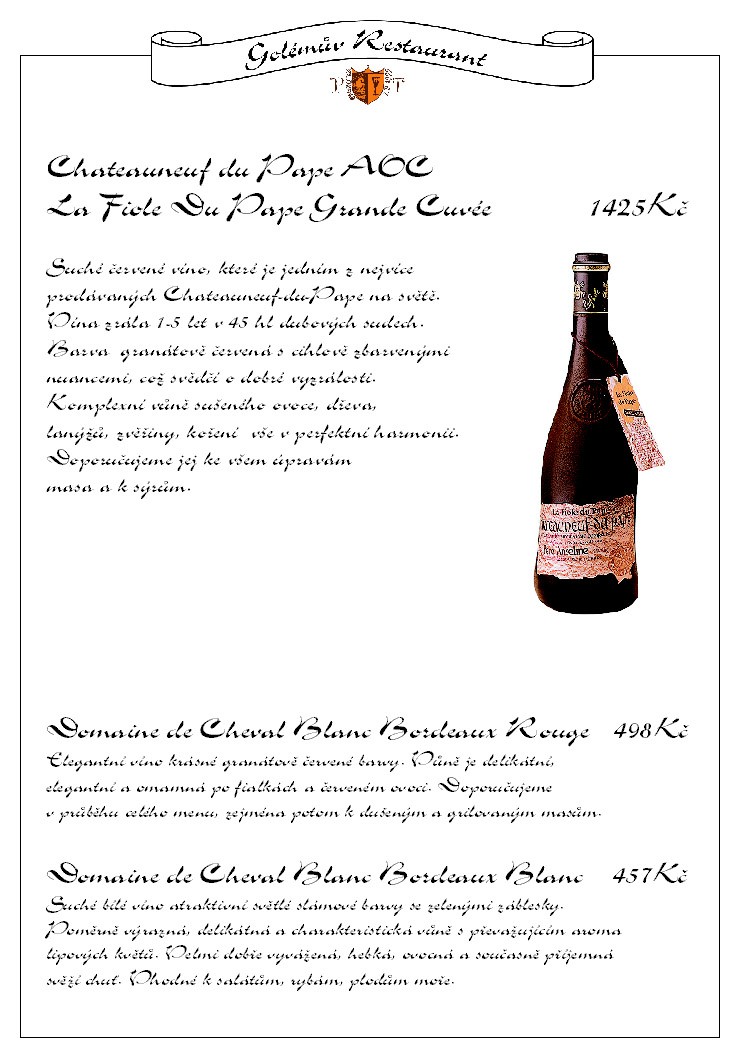 Golémův Restaurant
P T
Chateauneuf du Pape AOC
La Fiole Du Pape Grande Cuvée 1425Kč
Suché červené víno, které je jedním z nejvíce
prodávaných Chateauneuf-du-Pape na světě.
Vína zrála 1-5 let v 45 hl dubových sudech.
Barva granátově červená s cihlově zbarvenými
nuancemi, což svědčí o dobré vyzrálosti.
Komplexní vůně sušeného ovoce, dřeva,
lanýžů, zvěřiny, koření vše v perfektní harmonii.
Doporučujeme jej ke všem úpravám
masa a k sýrům.
La Fiole du Pape
Chateauneuf-du-Pape
Père Anselme
Domaine de Cheval Blanc Bordeaux Rouge 498Kč
Elegantní víno krásné granátově červené barvy. Vůně je delikátní,
elegantní a omamná po fialkách a červeném ovoci. Doporučujeme
v průběhu celého menu, zejména potom k dušeným a grilovaným masům.
Domaine de Cheval Blanc Bordeaux Blanc 457Kč
Suché bílé víno atraktivní světlé slámové barvy se zelenými záblesky.
Poměrně výrazná, delikátná a charakteristická vůně s převažujícím aroma
lipových květů. Velmi dobře vyvážená, hebká, ovocná a současně příjemná
svěží chuť. Vhodné k salátům, rybám, plodům moře.